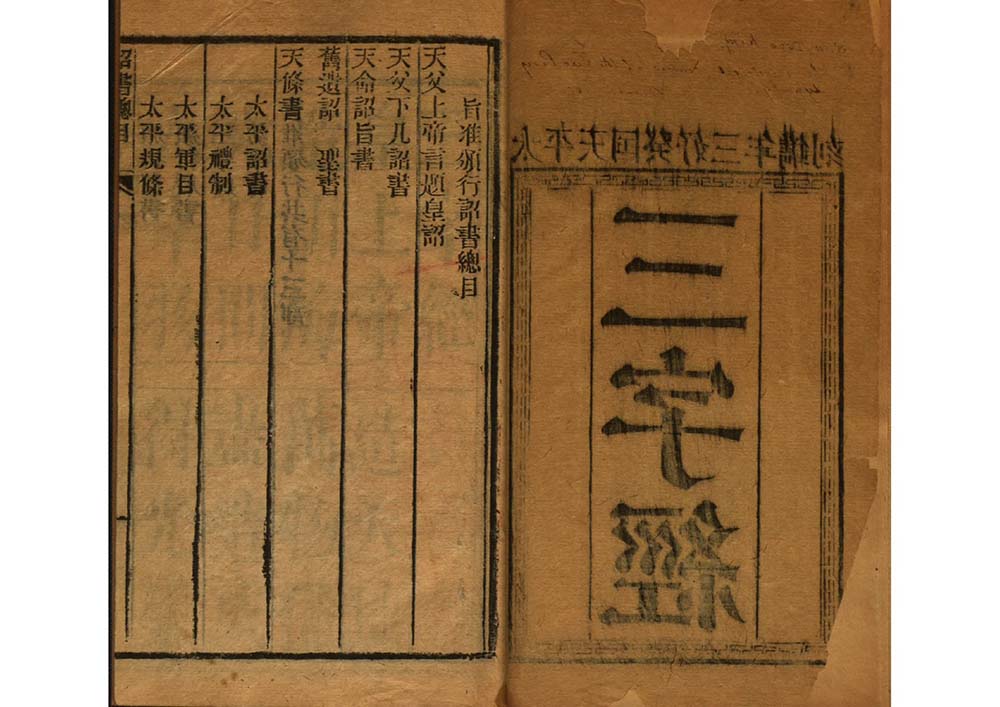 太平天囯癸好三年鐫刻
三字經
旨准頒行詔書總目
天父上帝言題皇詔
天父下凡詔書
天命詔旨書
舊遺詔聖書
天條書
太平詔書
太平禮制
太平軍目
太平規條
詔書總目